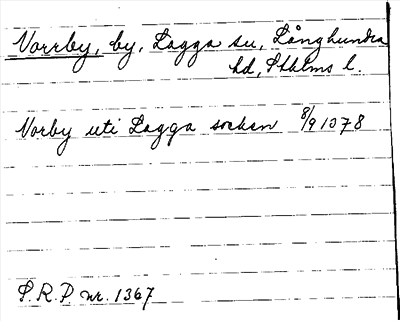 Norrby, by, Lagga sn, Långhundra
hd, Sthlms l.
Norby uti Lagga sochen 8/9 1378
S.R.P nr. 1367